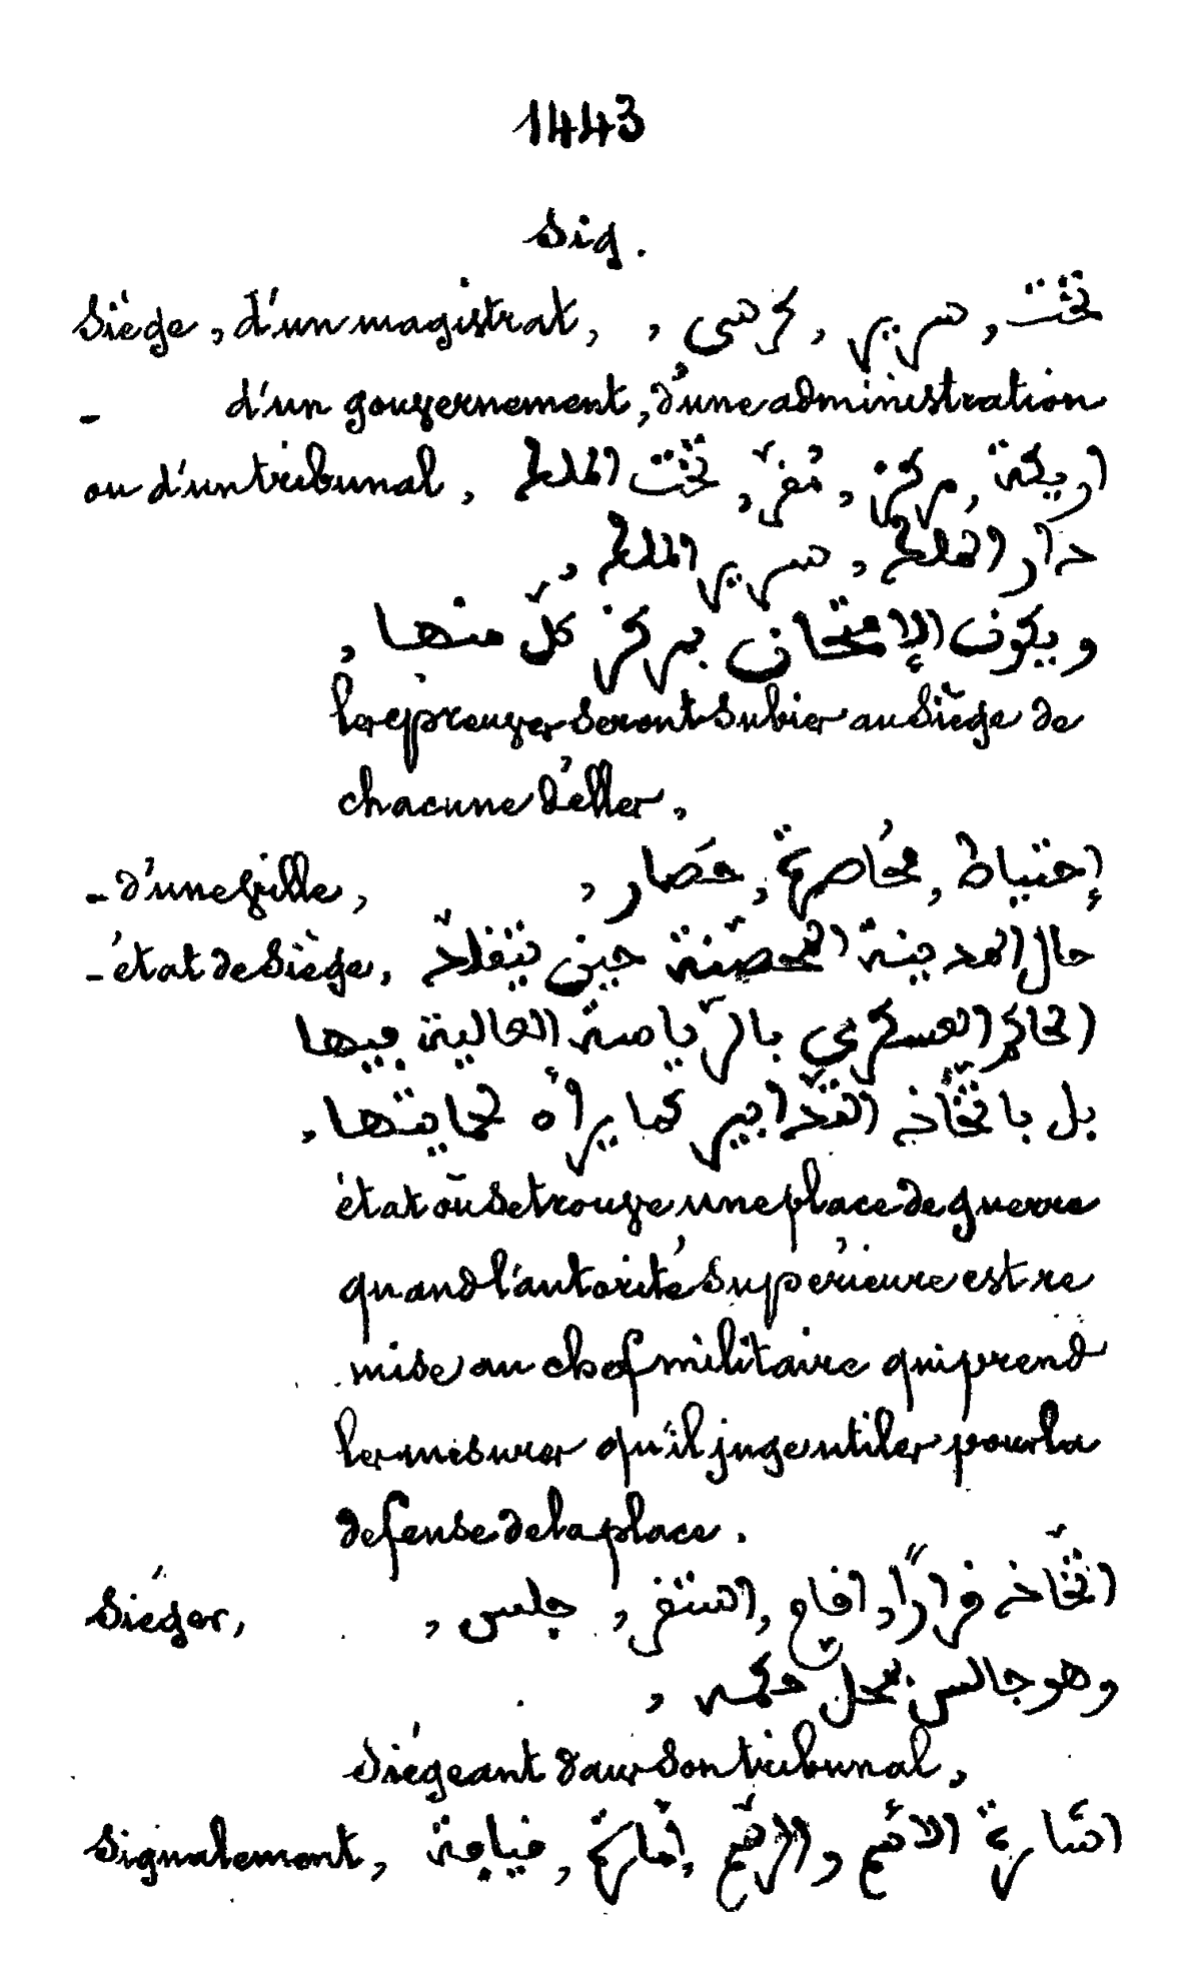 1443
Sig.
Siège, d'un magistrat, تخت, سرير, كرسى,
- d'un gouvernement, d'une administration
ou d'un tribunal, اريكة, مركز, مقرّ, تخت الملك
دار الملك, سرير الملك,
ويكون الإمتحان بمركز كلّ منها,
les épreuves seront subies au siège de
chacune d'elles,
- d'une ville, إحتياط, محُاصرة, حَصار,
- état de siège, حال المدينة المحصّنة حين يتقلّد
الحاكم العسكري بالرّياسة العالية فيها
بل باتّخاذ التّدابير كما يراه لحمايتها,
état où se trouve une place de guerre
quand l'autorité supérieure est re
mise au chef militaire qui prend
les mesures qu'il juge utiles pour la
défense de la place.
Siéger, اتّخاذ قرارًا, اقام, استقر, جلس,
وهو جالس بمحلّ حكمه,
siégeant dans son tribunal,
Signalement, اشارة الاسم والرقم, امارة, قيافة